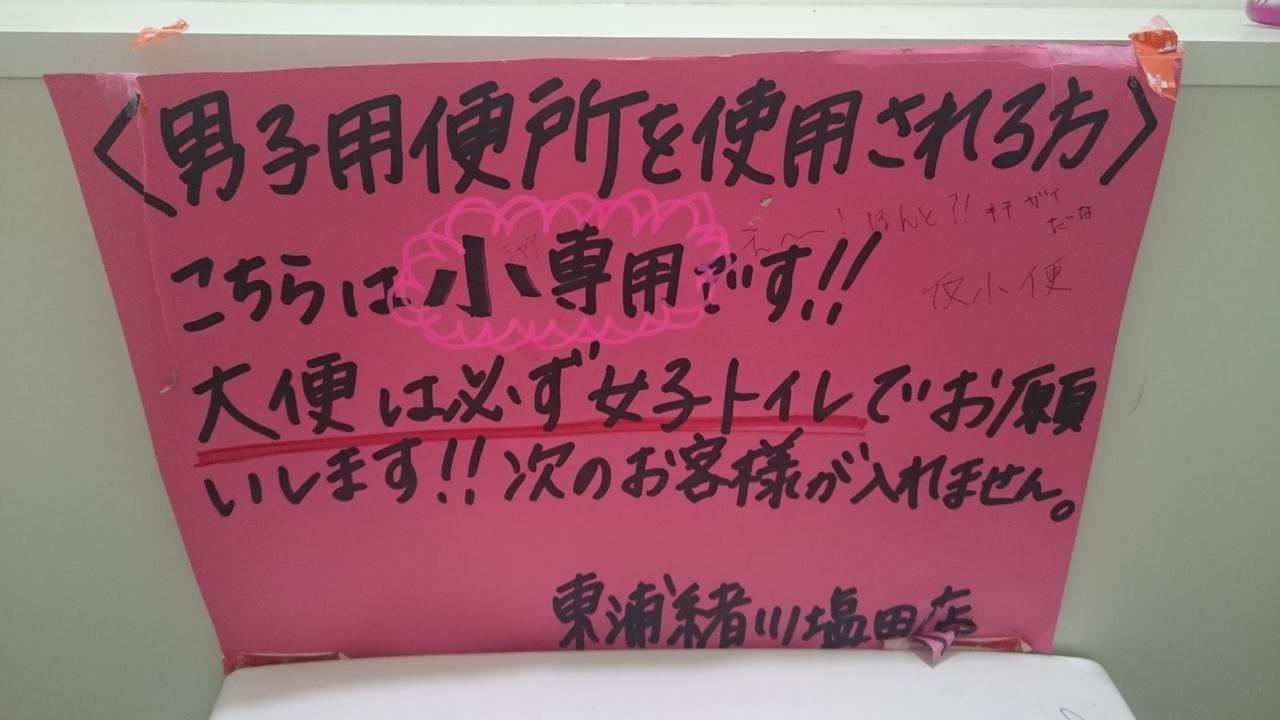 〈男子用便所を使用される方〉
こちらは小専用です!!
えー〜!ほんと?!キチガイ
だな
仮小便
大便は必ず女子トイレでお願
いします!!次のお客様が入れません。
東浦緒川塩田店